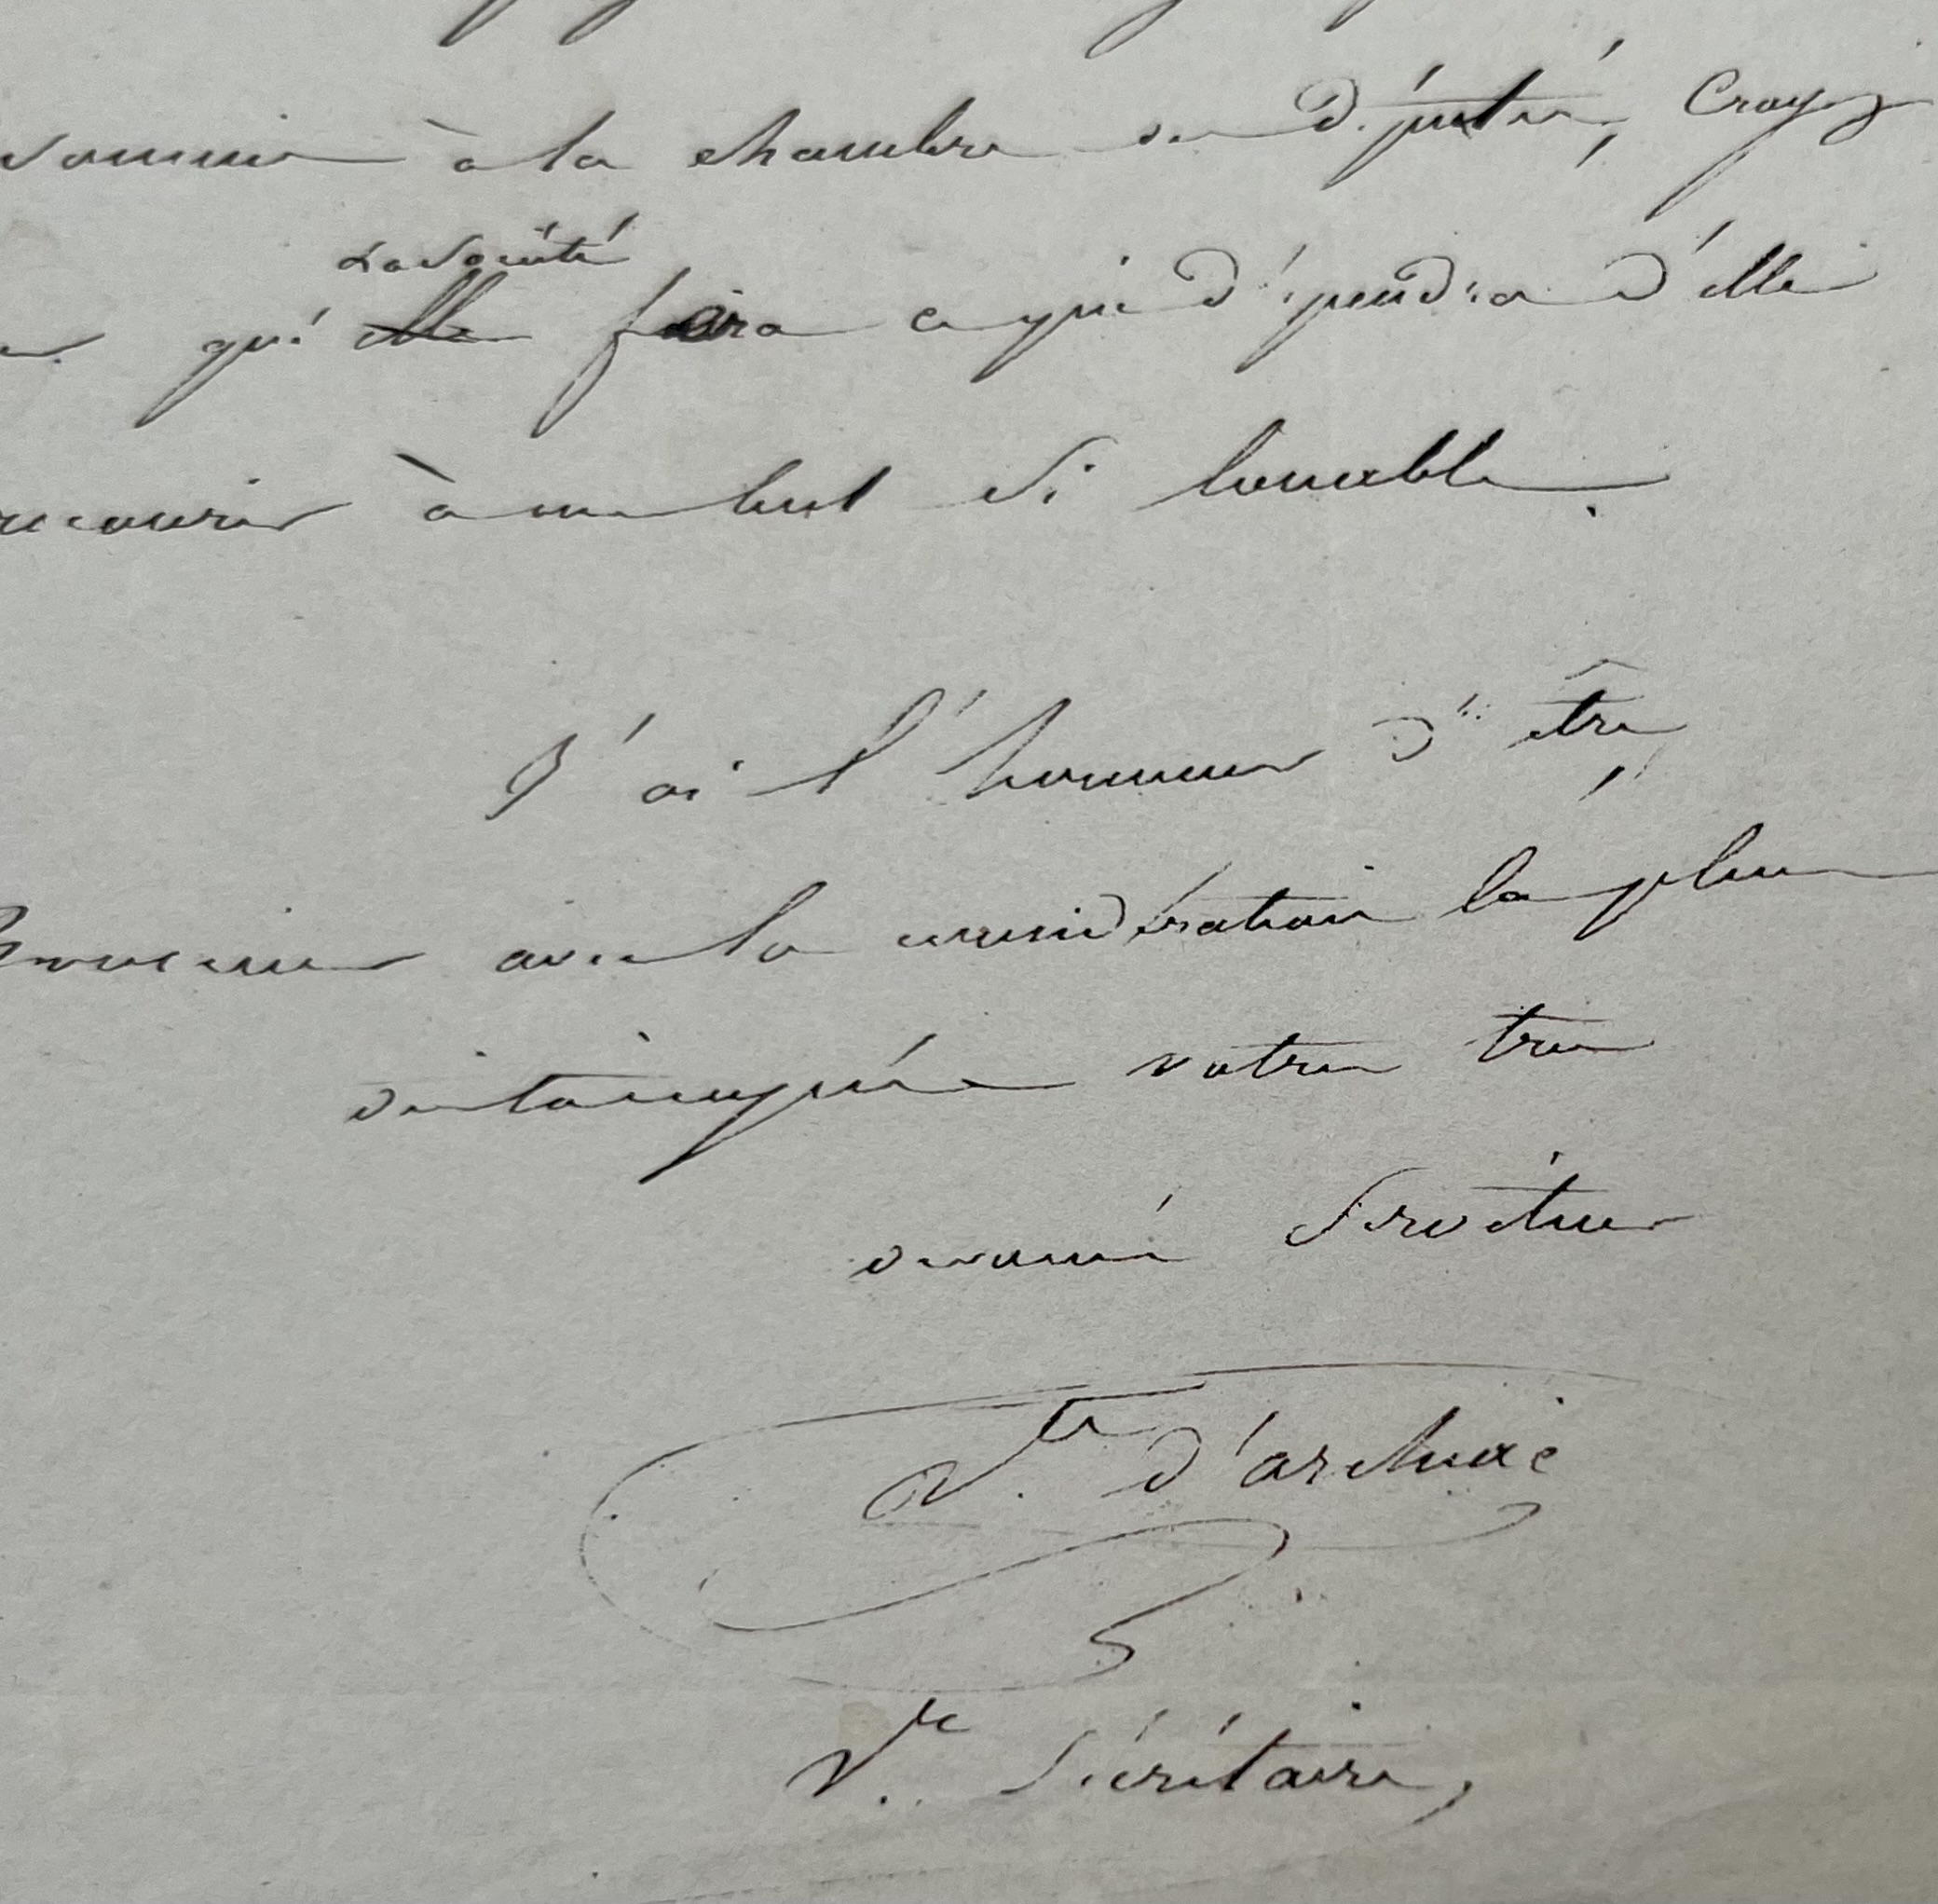 à la chambre des Députés, Croyez
la société
qu'elle fera ce qui dépendra d'elle
concourir à un but si louable.
J'ai l'honneur d'être,
Monsieur avec la considération la plus
distinguée votre tres
devoué Serviteur
Vte. d'archiac
Vce Sécrétaire,